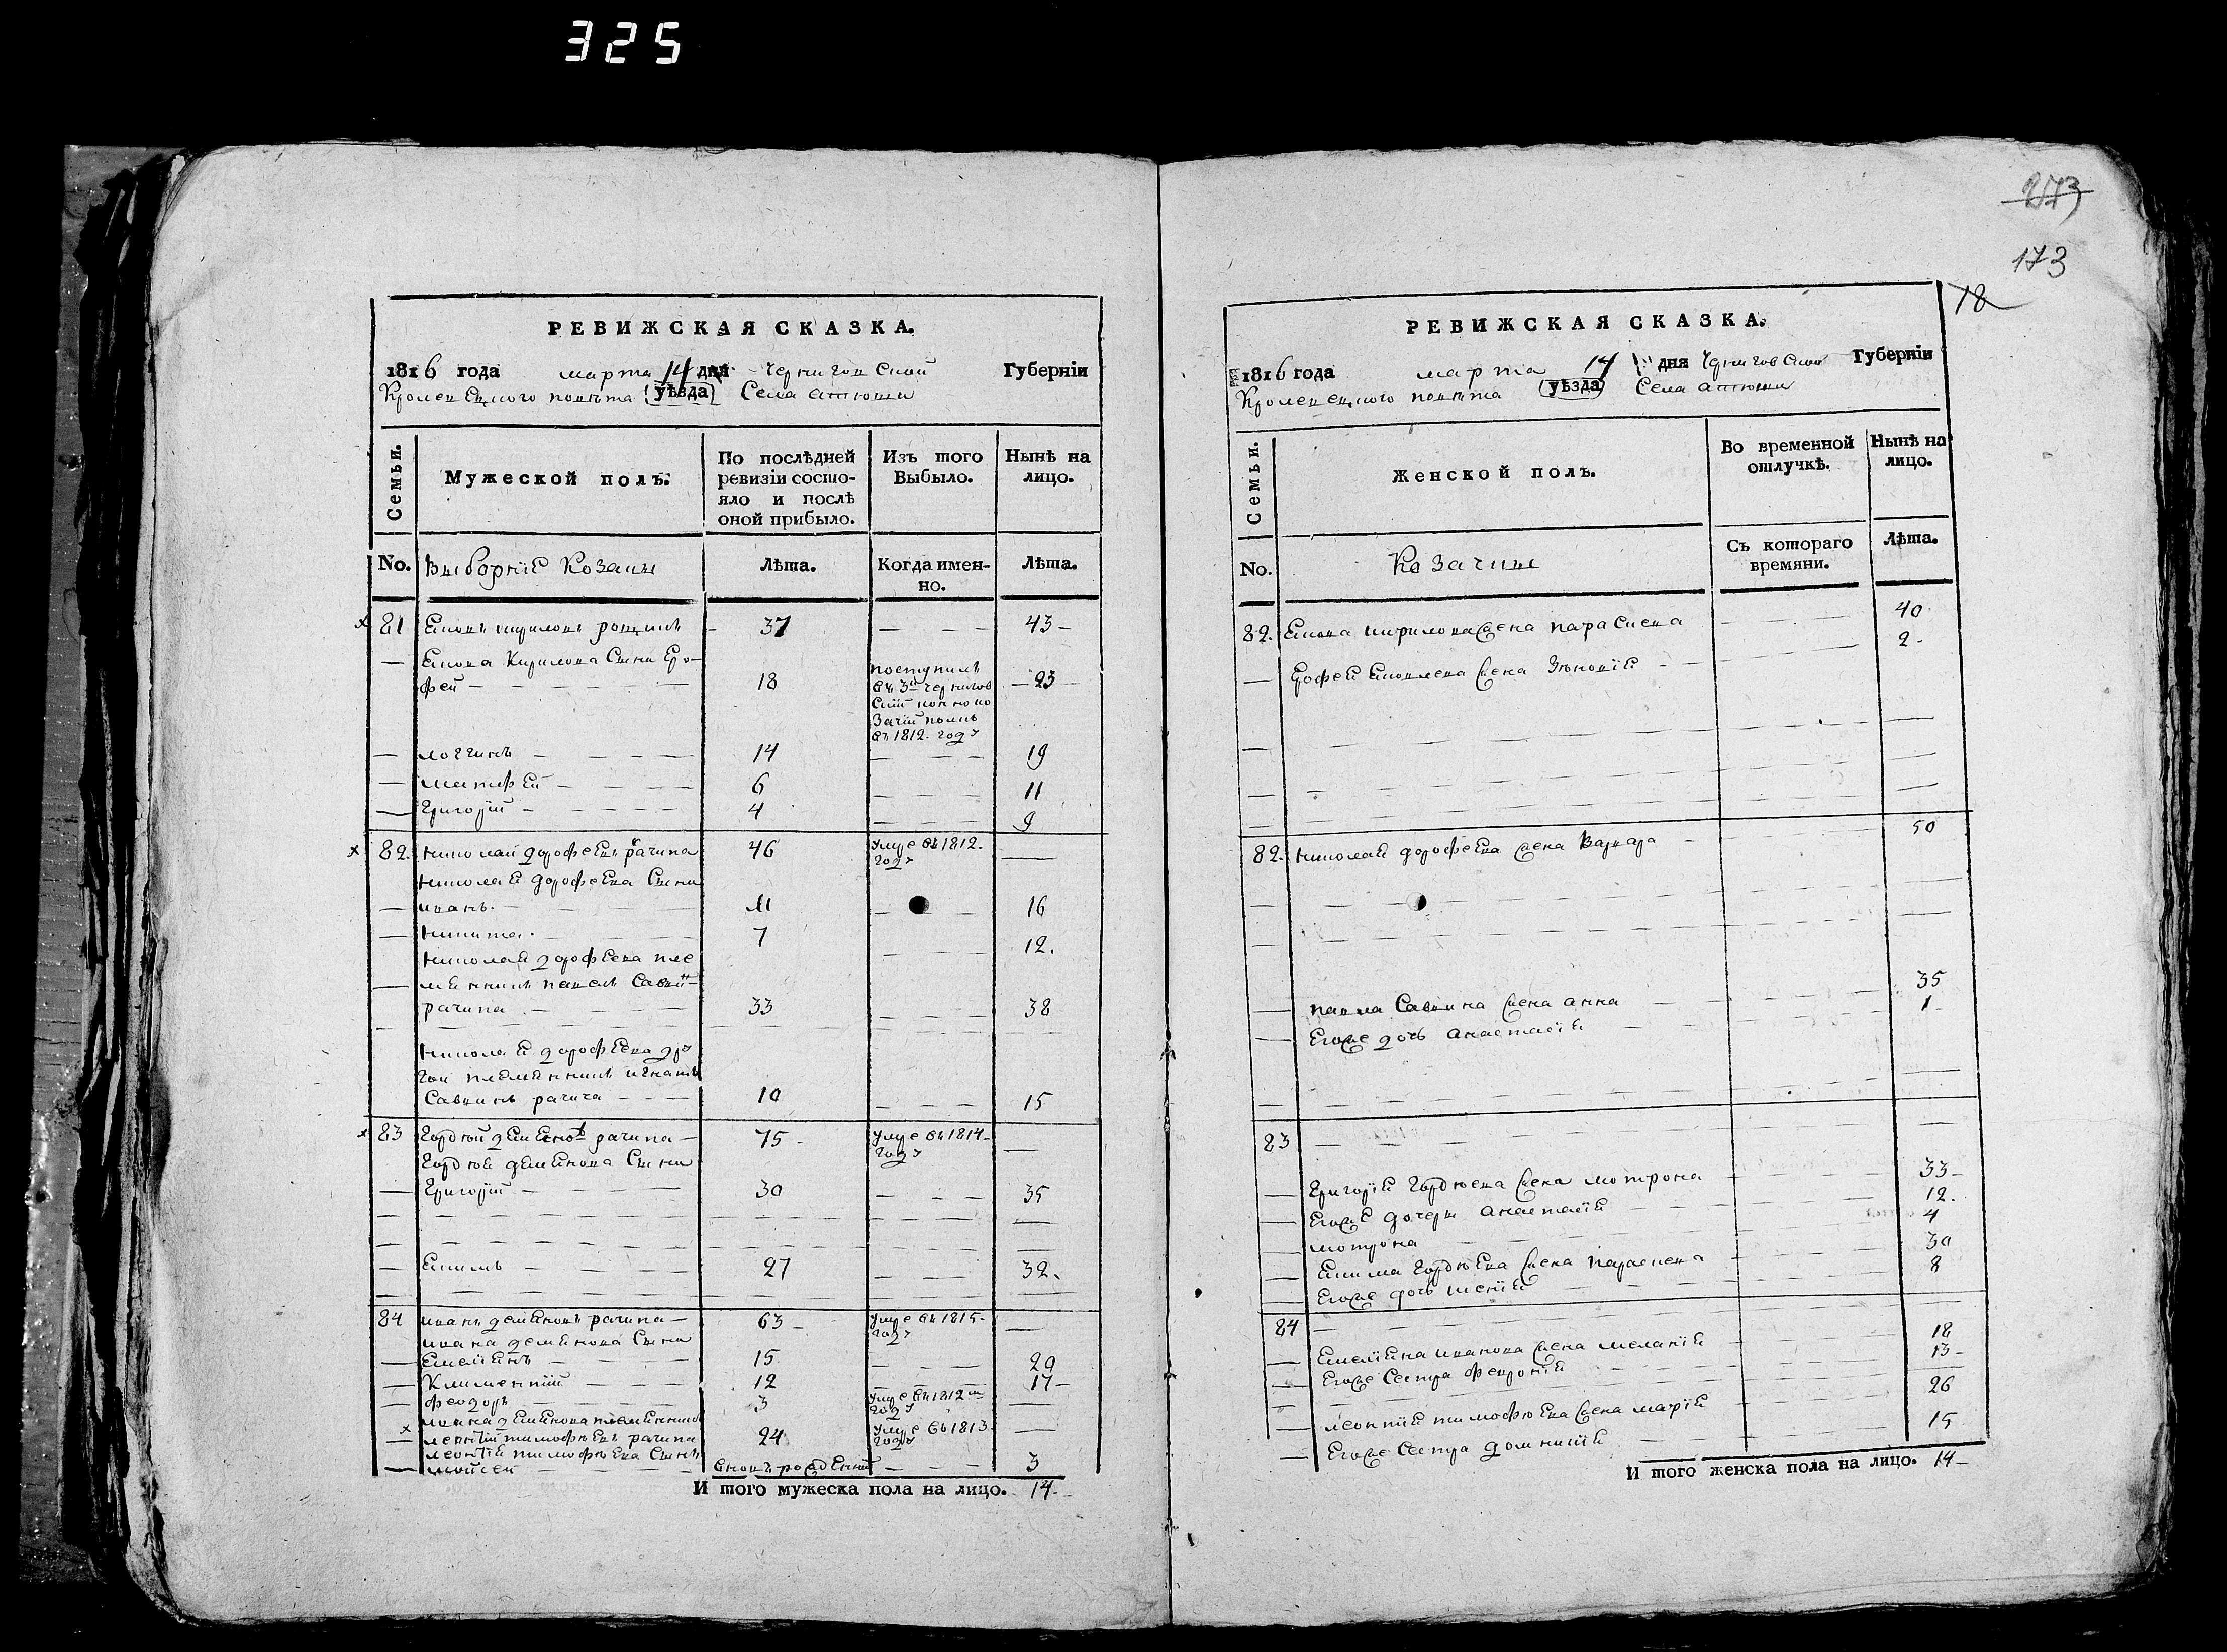 325
273
173
18
РЕВИЖСКАЯ СКАЗКА.
1816 года марта 14 дня Черниговской Губерніи
Кролевецкого повѣта уѣзда Села атюши
Семьи.
Мужеской полъ.
По послѣдней ревизіи состо-
яло и послѣ
оной прибыло.
Изъ того Выбыло.
Нынѣ на лицо.
No. Выборніе Козаки
Лѣта.
Когда имен-
но.
Лѣта.
81 Яковъ кириловъ 37 — 43
— Якова Кирилова Сыни Еро-
фей 18 поступилъ въ 3й Чернигов
Скій конно ко
Зачій полкъ
въ 1812. году 23
— логгинъ 14 — 19
— матфей 6 — 11
— Григорій 4 — 9
82. николай дорофеевъ рачипа 46 умре въ 1812. году —
николая дорофеева Сыни
— иванъ 11 — 16
— никита 7 — 12.
николая дорофеева пле
— мянникъ павелъ Саввинъ
рачипа 33 — 38
николая дорофеева дру
гой племянникъ игнатъ
Саввинъ рачипа 10 — 15
83 Гордѣй демяновъ рачипа 75 умре въ 1814 году —
Гордѣя демянова Сыни
— Григорій 30 — 35
— Екимъ 27 — 32.
84 иванъ демяновъ рачипа 63 умре въ 1815 году —
ивана демянова Сыни
— Емелянъ 15 — 20
— Климентій 12 — 17
— федоръ 3 умре въ 1812м году —
ивана демянова племянникъ
— леонтій тимофѣевъ рачипа 24 умре въ 1813 году —
леонтія тимофѣева Сынъ
— мойсей вновъ рожденній — 3
И того мужеска пола на лицо. 14
РЕВИЖСКАЯ СКАЗКА.
1816 года марта 14 дня Черниговской Губерніи
Кролевецкого повѣта уѣзда Села атюши
Семьи.
Женской полъ.
Во временной отлучкѣ.
Нынѣ на лицо.
No. Козачки
Съ котораго времяни.
Лѣта.
Якова кирилова жена параскева 40
— Ерофея яковлева жена Зѣновія 2
82. николая дорофеева жена Варвара 50
— павла Саввина жена анна 35
— Егоже дочь анастасія 1
83
— Григорія Гордѣева жена мотрона 33
— Егоже дочери анастасія 12.
— мотрона 4
— Екима Гордѣева жена параскева 30
— Егоже дочь 8
84
— Емеляна иванова жена меланія 18
— Егоже Сестра февронія 13
— леонтія тимофѣева жена марія 26
— Егоже Сестра домникія 15
И того женска пола на лицо. 14